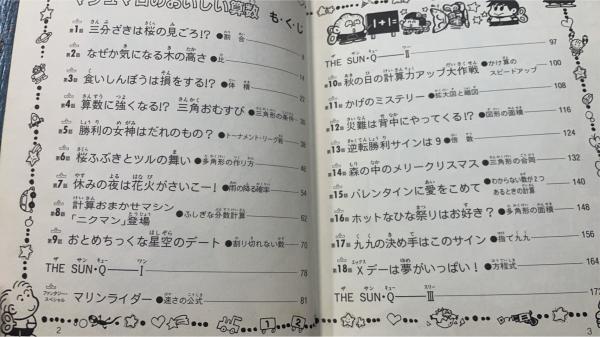 マシュマロのおいしい算数 も・く・じ
第1回 三分ざきは桜の見ごろ!? ●割合
第2回 なぜか気になる木の高さ ●比
第3回 食いしんぼうは損をする!? ●体積
第4回 算数に強くなる!? 三角おむすび ●三角形の条件
第5回 勝利の女神はだれのもの? ●トーナメント・リーグ戦 38
第6回 桜ふぶきとツルの舞い ●多角形の作り方 46
第7回 休みの夜は花火がさいこー! ●雨の降る確率 54
第8回 計算おまかせマシン「ニクマン」登場 ●ふしぎな分数計算 62
第9回 おとめちっくな星空のデート ●割り切れない数 70
THE SUN・Q——I 78
ファンタジー・スペシャル マリンライダー ●速さの公式 81
2
1+1=
THE SUN・Q——II 97
第10回 秋の日の計算力アップ大作戦 ●かけ算のスピードアップ 100
第11回 かげのミステリー ●拡大図と縮図 108
第12回 災難は背中にやってくる!? ●図形の面積 116
第13回 逆転勝利サインは9 ●倍数 124
第14回 森の中のメリークリスマス ●三角形の合同 132
第15回 バレンタインに愛をこめて ●わからない数が2つあるときの計算 140
第16回 ホットなひな祭りはお好き? ●多角形の面積 148
第17回 九九の決め手はこのサイン ●捨て九九 156
第18回 Xデーは夢がいっぱい! ●方程式 164
THE SUN・Q——III
3